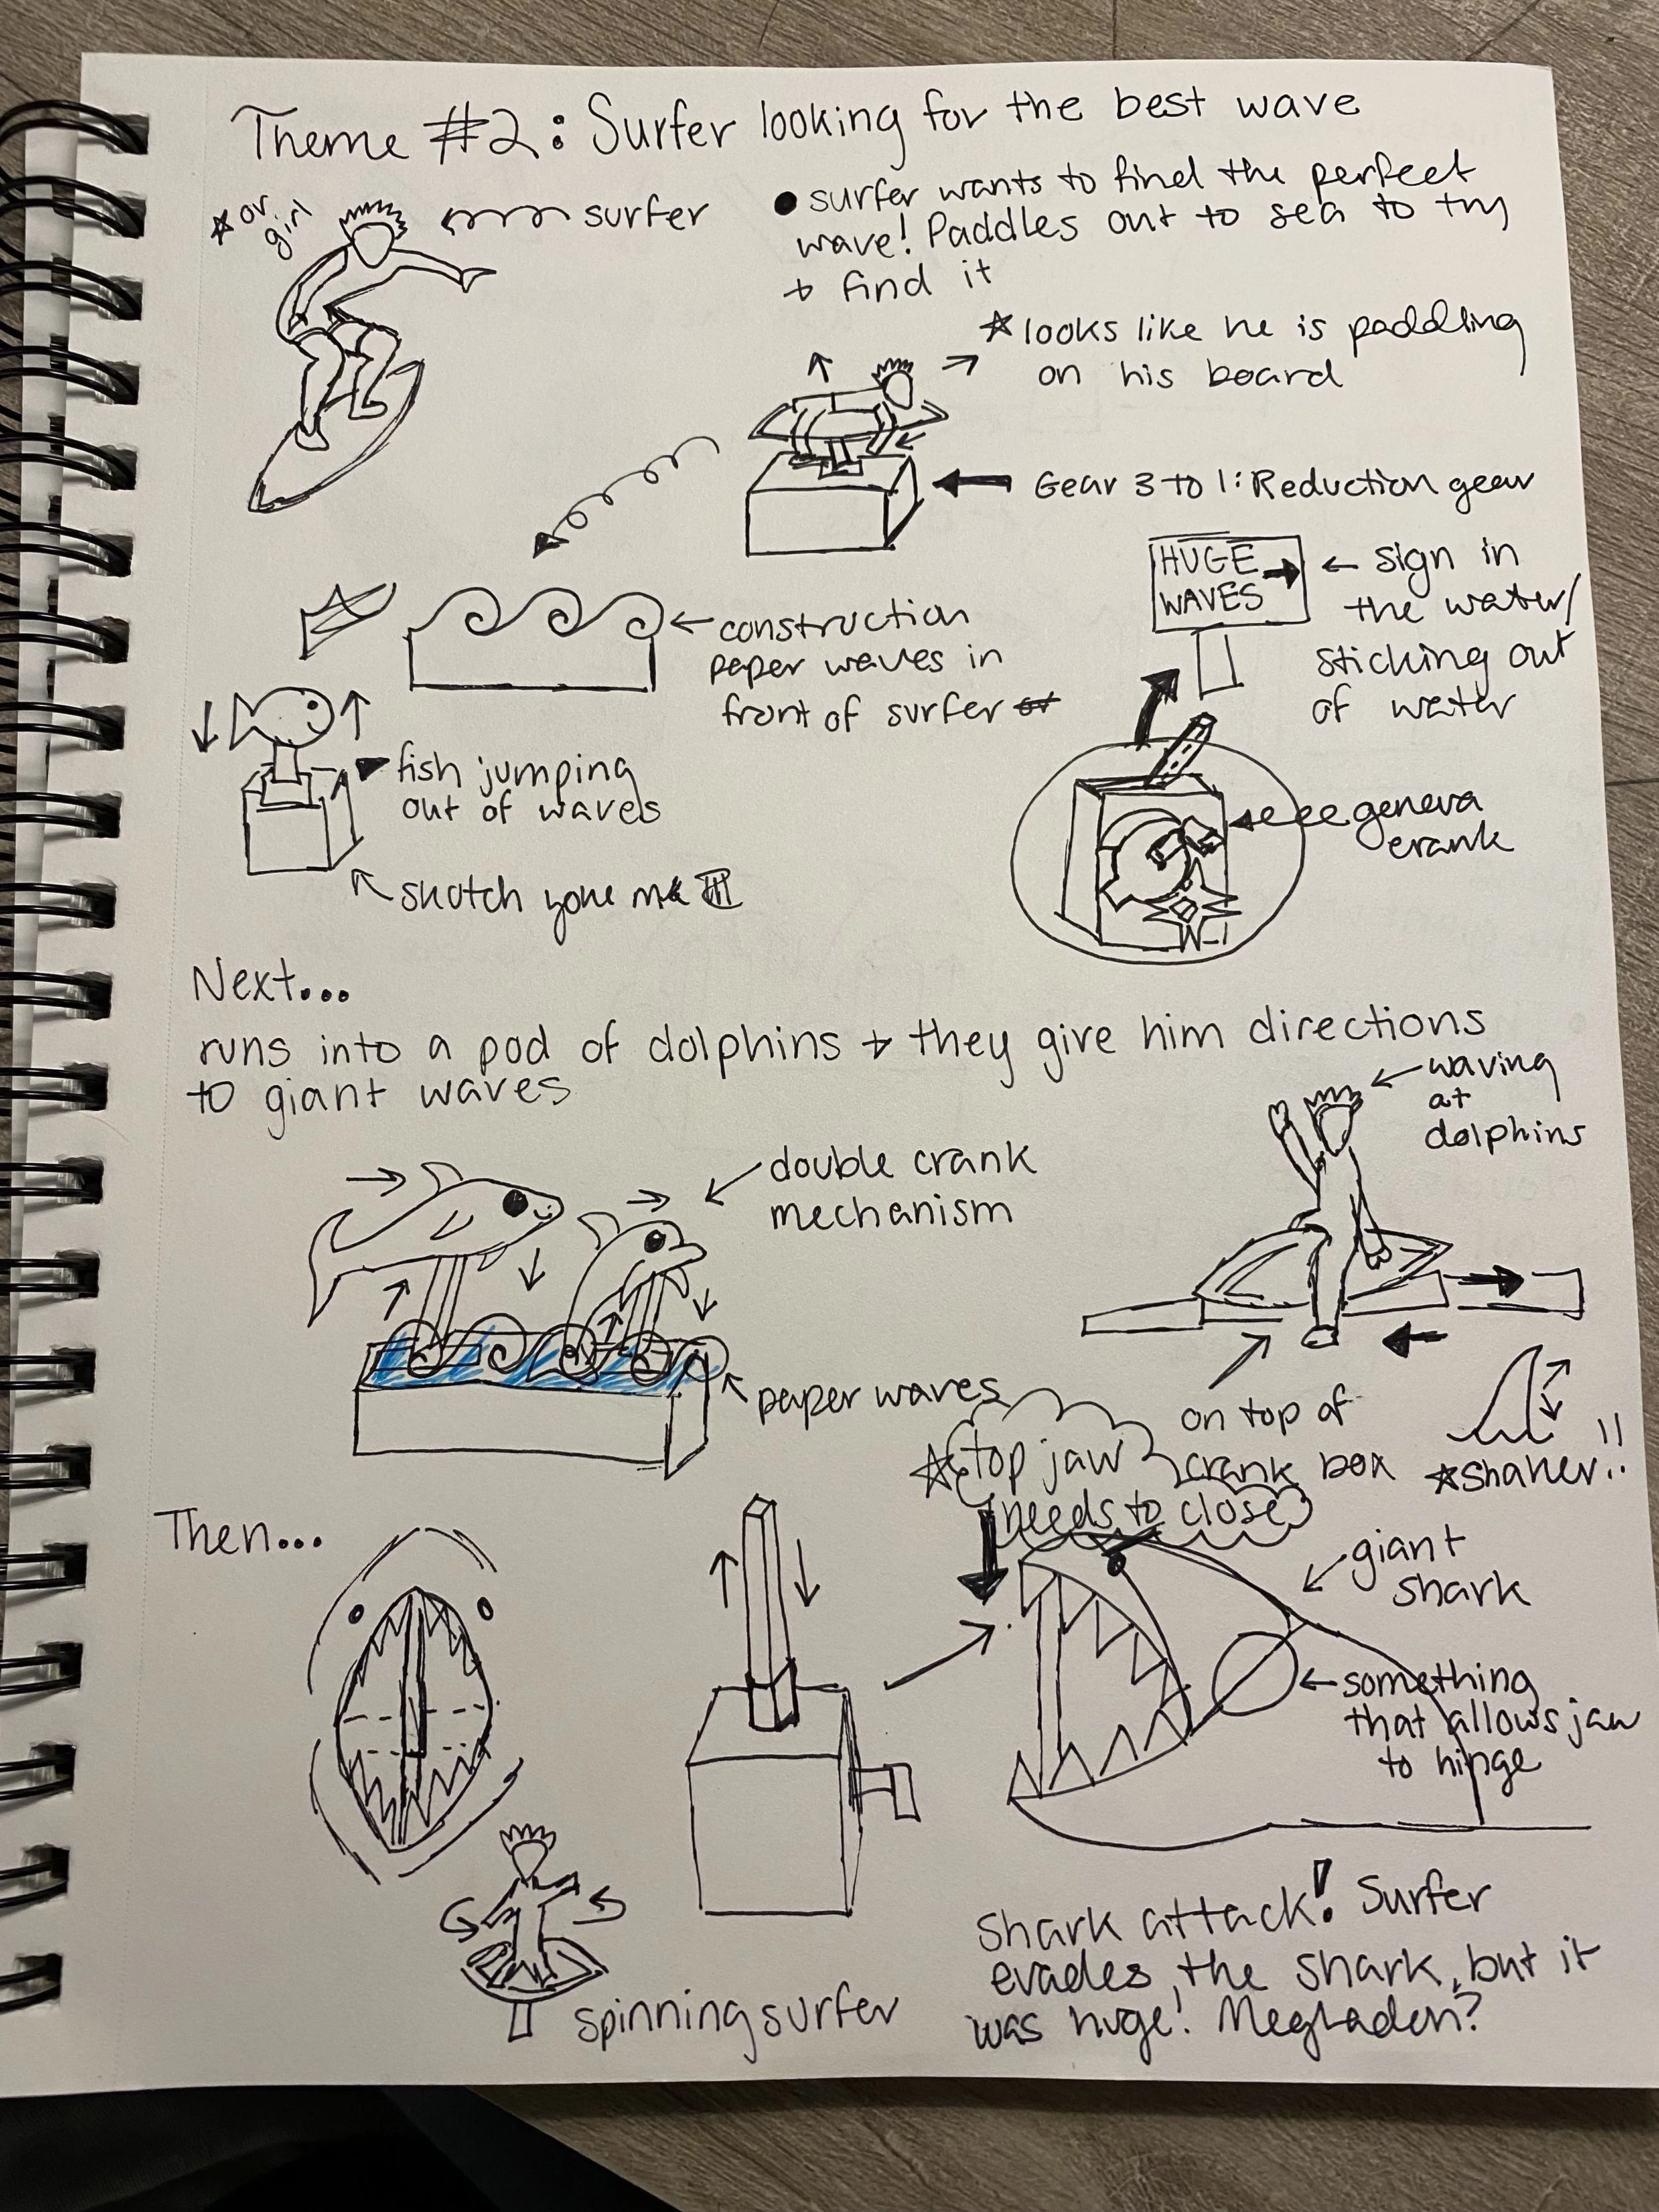 Theme #2: Surfer looking for the best wave
★ or
girl
surfer
• surfer wants to find the perfect
wave! Paddles out to sea to try
+ find it
★ looks like he is paddling
on his board
Gear 3 to 1: Reduction gear
HUGE
WAVES
sign in
the water/
sticking out
of water
construction
paper waves in
front of surfer
fish jumping
out of waves
geneva
crank
skotch yoke
Next...
runs into a pod of dolphins + they give him directions
to giant waves
waving
at
dolphins
double crank
mechanism
paper waves
on top of
crank box
★ shaker!!
★ top jaw
needs to close
Then...
giant
shark
something
that allows jaw
to hinge
spinning surfer
shark attack! Surfer
evades the shark, but it
was huge! Megladon?